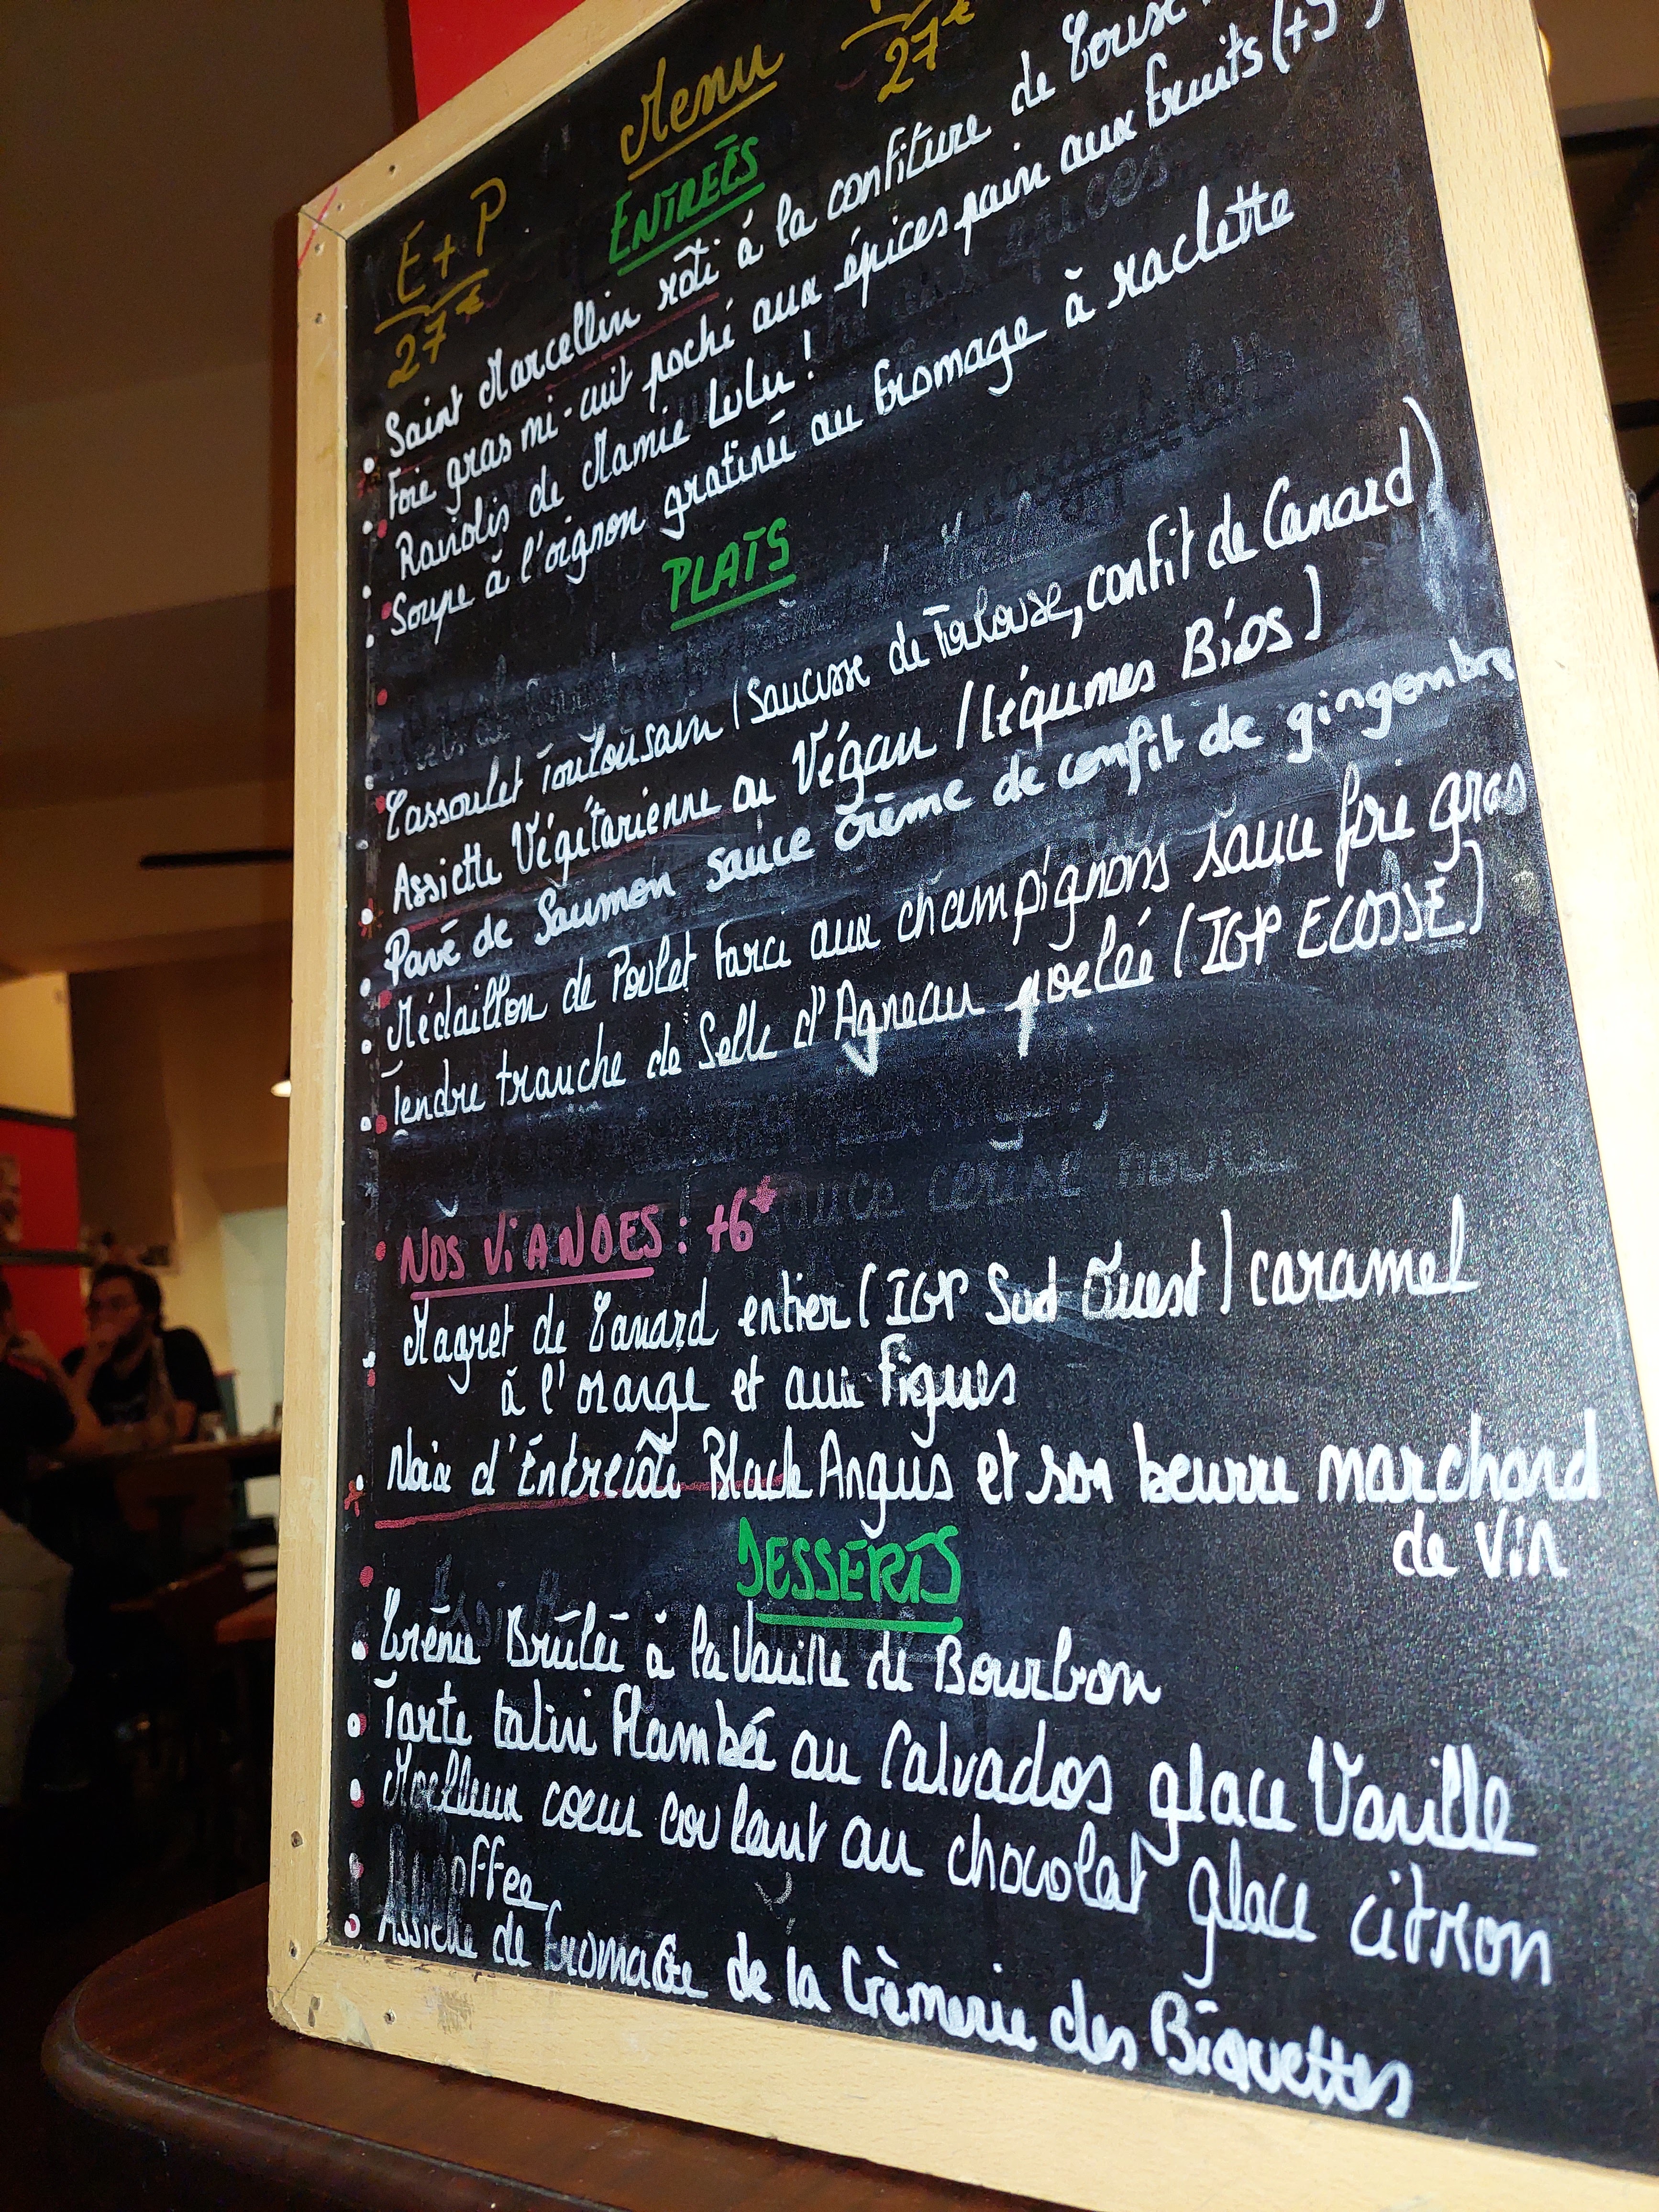 Menu
E+P
27€
27€
ENTREÉS
Saint Marcellin rôti à la confiture de
Foie gras mi-cuit poché aux épices pain aux fruits (+5
Raviolis de Mamie Lulu !
Soupe à l'oignon gratinée au fromage à raclette
PLATS
Cassoulet Toulousain (Saucisse de Toulouse, confit de Canard)
Assiette Végétarienne ou Végan (légumes Bios)
Pavé de Saumon sauce crème de confit de gingembre
Médaillon de Poulet Farci aux champignons sauce foie gras
Tendre tranche de Selle d'Agneau poelée (IGP ECOSSE)
NOS ViANDES : +6€
Magret de Canard entier (IGP Sud Ouest) caramel
à l'orange et aux figues
Noix d'Entrecôte Black Angus et son beurre marchand
de vin
DESSERTS
Crème Brûlée à la Vanille de Bourbon
Tarte tatin Flambée au Calvados glace Vanille
Moelleux coeur coulant au chocolat glace citron
Assiette de Fromage de la Crèmerie des Biquettes